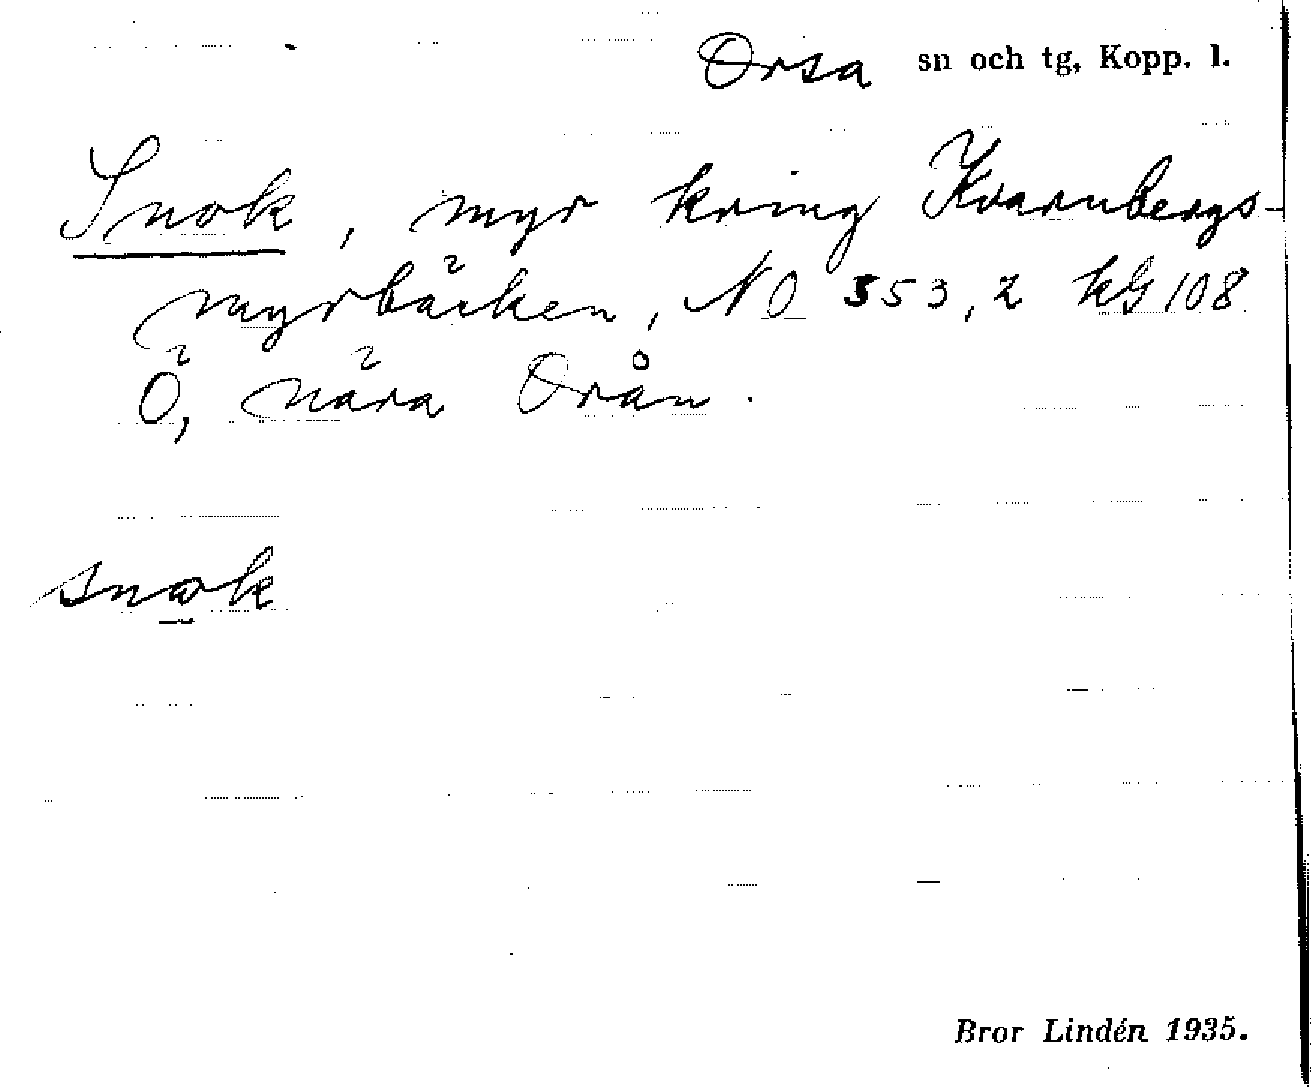 Orsa sn och tg, Kopp. l.
Snok, myr kring Kvarnbergs-
myrbäcken, NO 353,2 kG 108
Ö, nära Orån.
snok
Bror Lindén 1935.